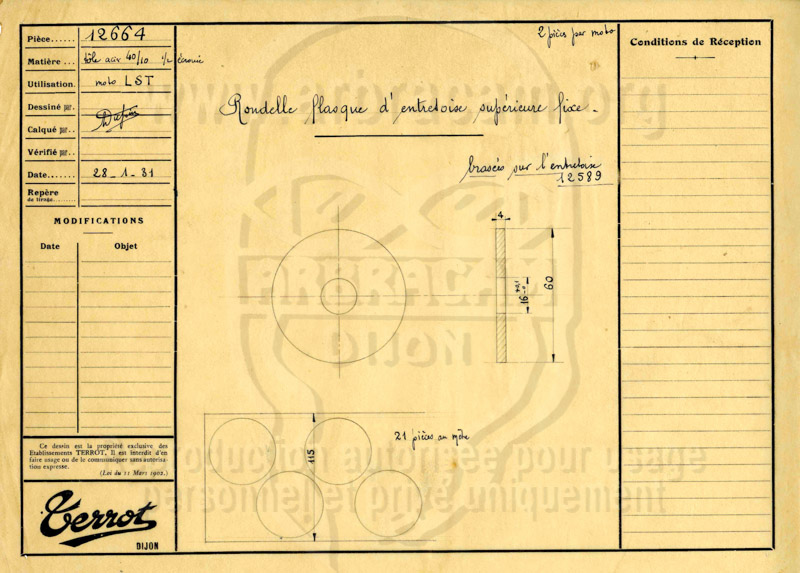 Pièce...... 12664
Matière... tôle acier 40/10 1/2 écrouie
Utilisation. moto LST
Dessiné par.
Calqué par..
Vérifié par..
Date....... 28-1-31
Repère
de tirage
MODIFICATIONS
Date Objet
Ce dessin est la propriété exclusive des
Etablissements TERROT, Il est interdit d'en
faire usage ou de le communiquer sans autorisa-
tion expresse.
(Loi du 11 Mars 1902.)
Terrot
DIJON
2 pièces par moto
Rondelle flasque d'entretoise supérieure fixe.
brasées sur l'entretoise
12589
4
16
60
115
21 pièces au mètre
Conditions de Réception
www.arbracam.org
ARBRACAM
DIJON
Reproduction autorisée pour usage
personnel et privé uniquement